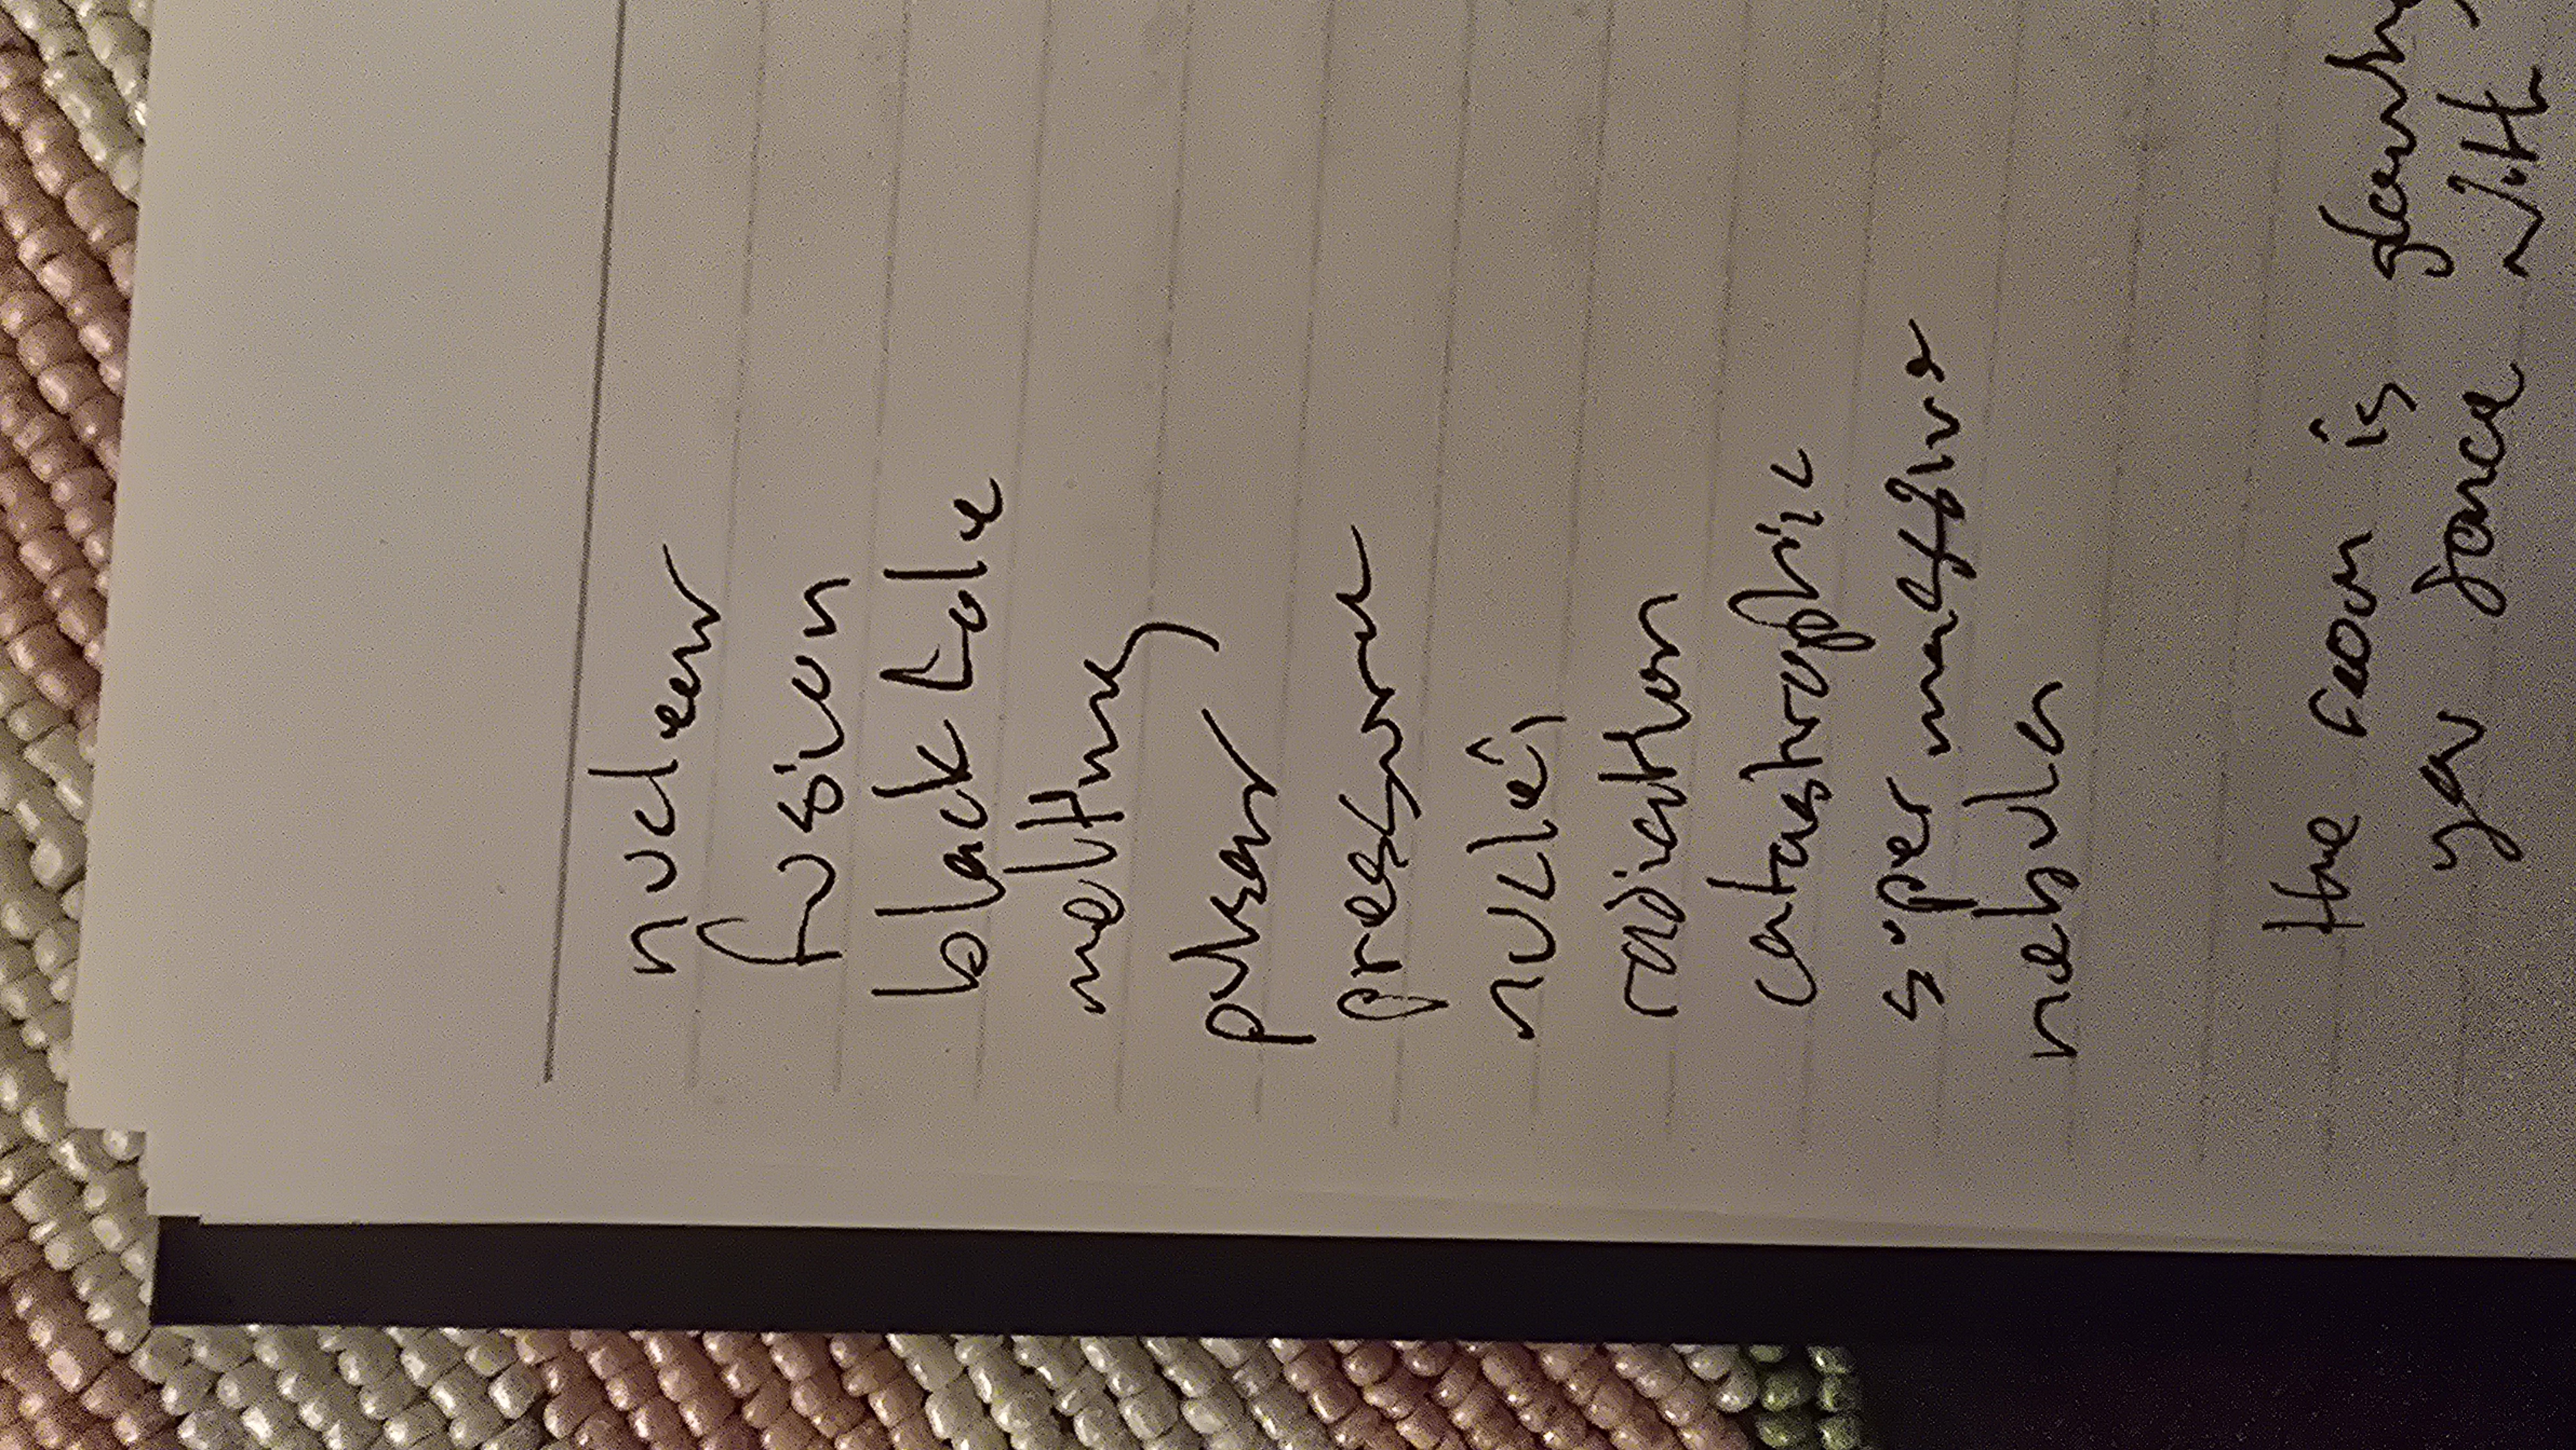 nuclear
fusion
black hole
melting
pulsar
pressure
nuclei
radiation
catastrophic
super massive
nebula
the room is
you dance with